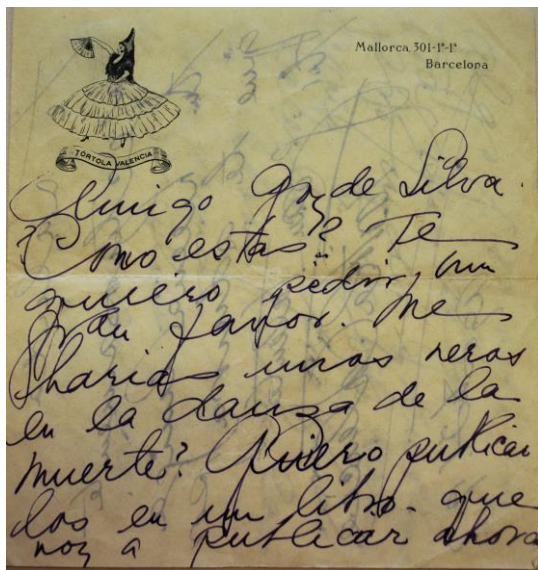 Mallorca, 301-1º-1ª
Barcelona
TORTOLA VALENCIA
Amigo Goy de Silva.
¿Como estas? Te
quiero pedir, un
gran favor. Me
harias unos versos
en la danza de la
muerte? Quiero publicar
los en un libro que
voy a publicar ahora